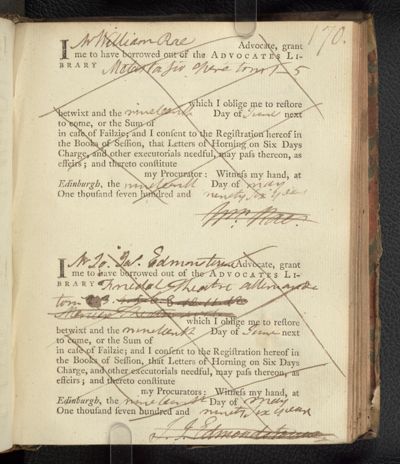 170.
I Mr William Rae Advocate, grant
me to have borrowed out of the ADVOCATES LI-
BRARY Metastasio opere tom 1-5
which I oblige me to reſtore
betwixt and the nineteenth Day of June next
to come, or the Sum of
in caſe of Failzie; and I conſent to the Regiſtration hereof in
the Books of Seſſion, that Letters of Horning on Six Days
Charge, and other executorials needful, may paſs thereon, as
effeirs; and thereto conſtitute
my Procurator: Witneſs my hand, at
Edinburgh, the nineteenth Day of May
One thouſand ſeven hundred and ninety six years
Wm. Rae.
I Mr Jas. Edmonstone Advocate, grant
me to have borrowed out of the ADVOCATES LI-
BRARY Friedel Theatre allemande
tom
which I oblige me to reſtore
betwixt and the nineteenth Day of June next
to come, or the Sum of
in caſe of Failzie; and I conſent to the Regiſtration hereof in
the Books of Seſſion, that Letters of Horning on Six Days
Charge, and other executorials needful, may paſs thereon, as
effeirs; and thereto conſtitute
my Procurators: Witneſs my hand, at
Edinburgh, the nineteenth Day of May
One thouſand ſeven hundred and ninety six years
J. J. Edmondstoune